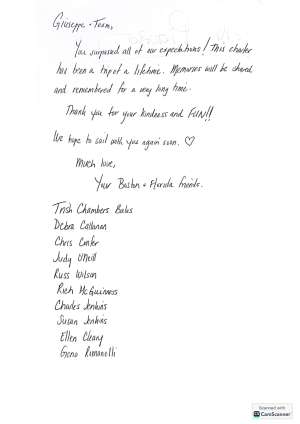 Giuseppe + Team,
You surpassed all of our expectations! This charter
has been a trip of a lifetime. Memories will be shared
and remembered for a very long time.
Thank you for your kindness and FUN!!
We hope to sail with you again soon. ♡
Much love,
Your Boston + Florida friends.
Trish Chambers
Debra Callahan
Chris
Judy O'Neill
Russ Wilson
Rich McGuinness
Charles Jenkins
Susan Jenkins
Ellen Cleary
Geno Romanelli
Scanned with
CS CamScanner